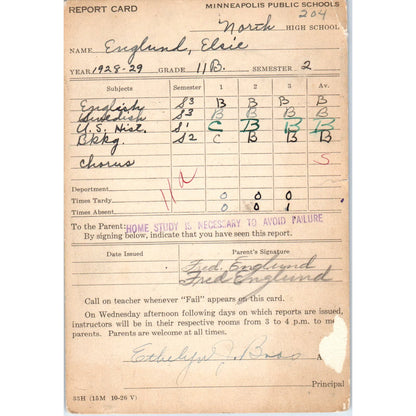 REPORT CARD MINNEAPOLIS PUBLIC SCHOOLS
204
North HIGH SCHOOL
NAME Englund, Elsie
YEAR 1928-29 GRADE 11B. SEMESTER 2
Subjects Semester 1 2 3 Av.
English S3 B B B B
Swedish S3 B B B B
U.S. Hist. S1 C B B B
Bkkg. S2 C B B B
Chorus S
11a
Department
Times Tardy 0 0 0
Times Absent 0 0 1
To the Parent: HOME STUDY IS NECESSARY TO AVOID FAILURE
By signing below, indicate that you have seen this report.
Date Issued Parent's Signature
Fred. Englund
Fred Englund
Call on teacher whenever "Fail" appears on this card.
On Wednesday afternoon following days on which reports are issued,
instructors will be in their respective rooms from 3 to 4 p.m. to meet
parents. Parents are welcome at all times.
Ethelyn J.
Principal
35H (15M 10-26 V)